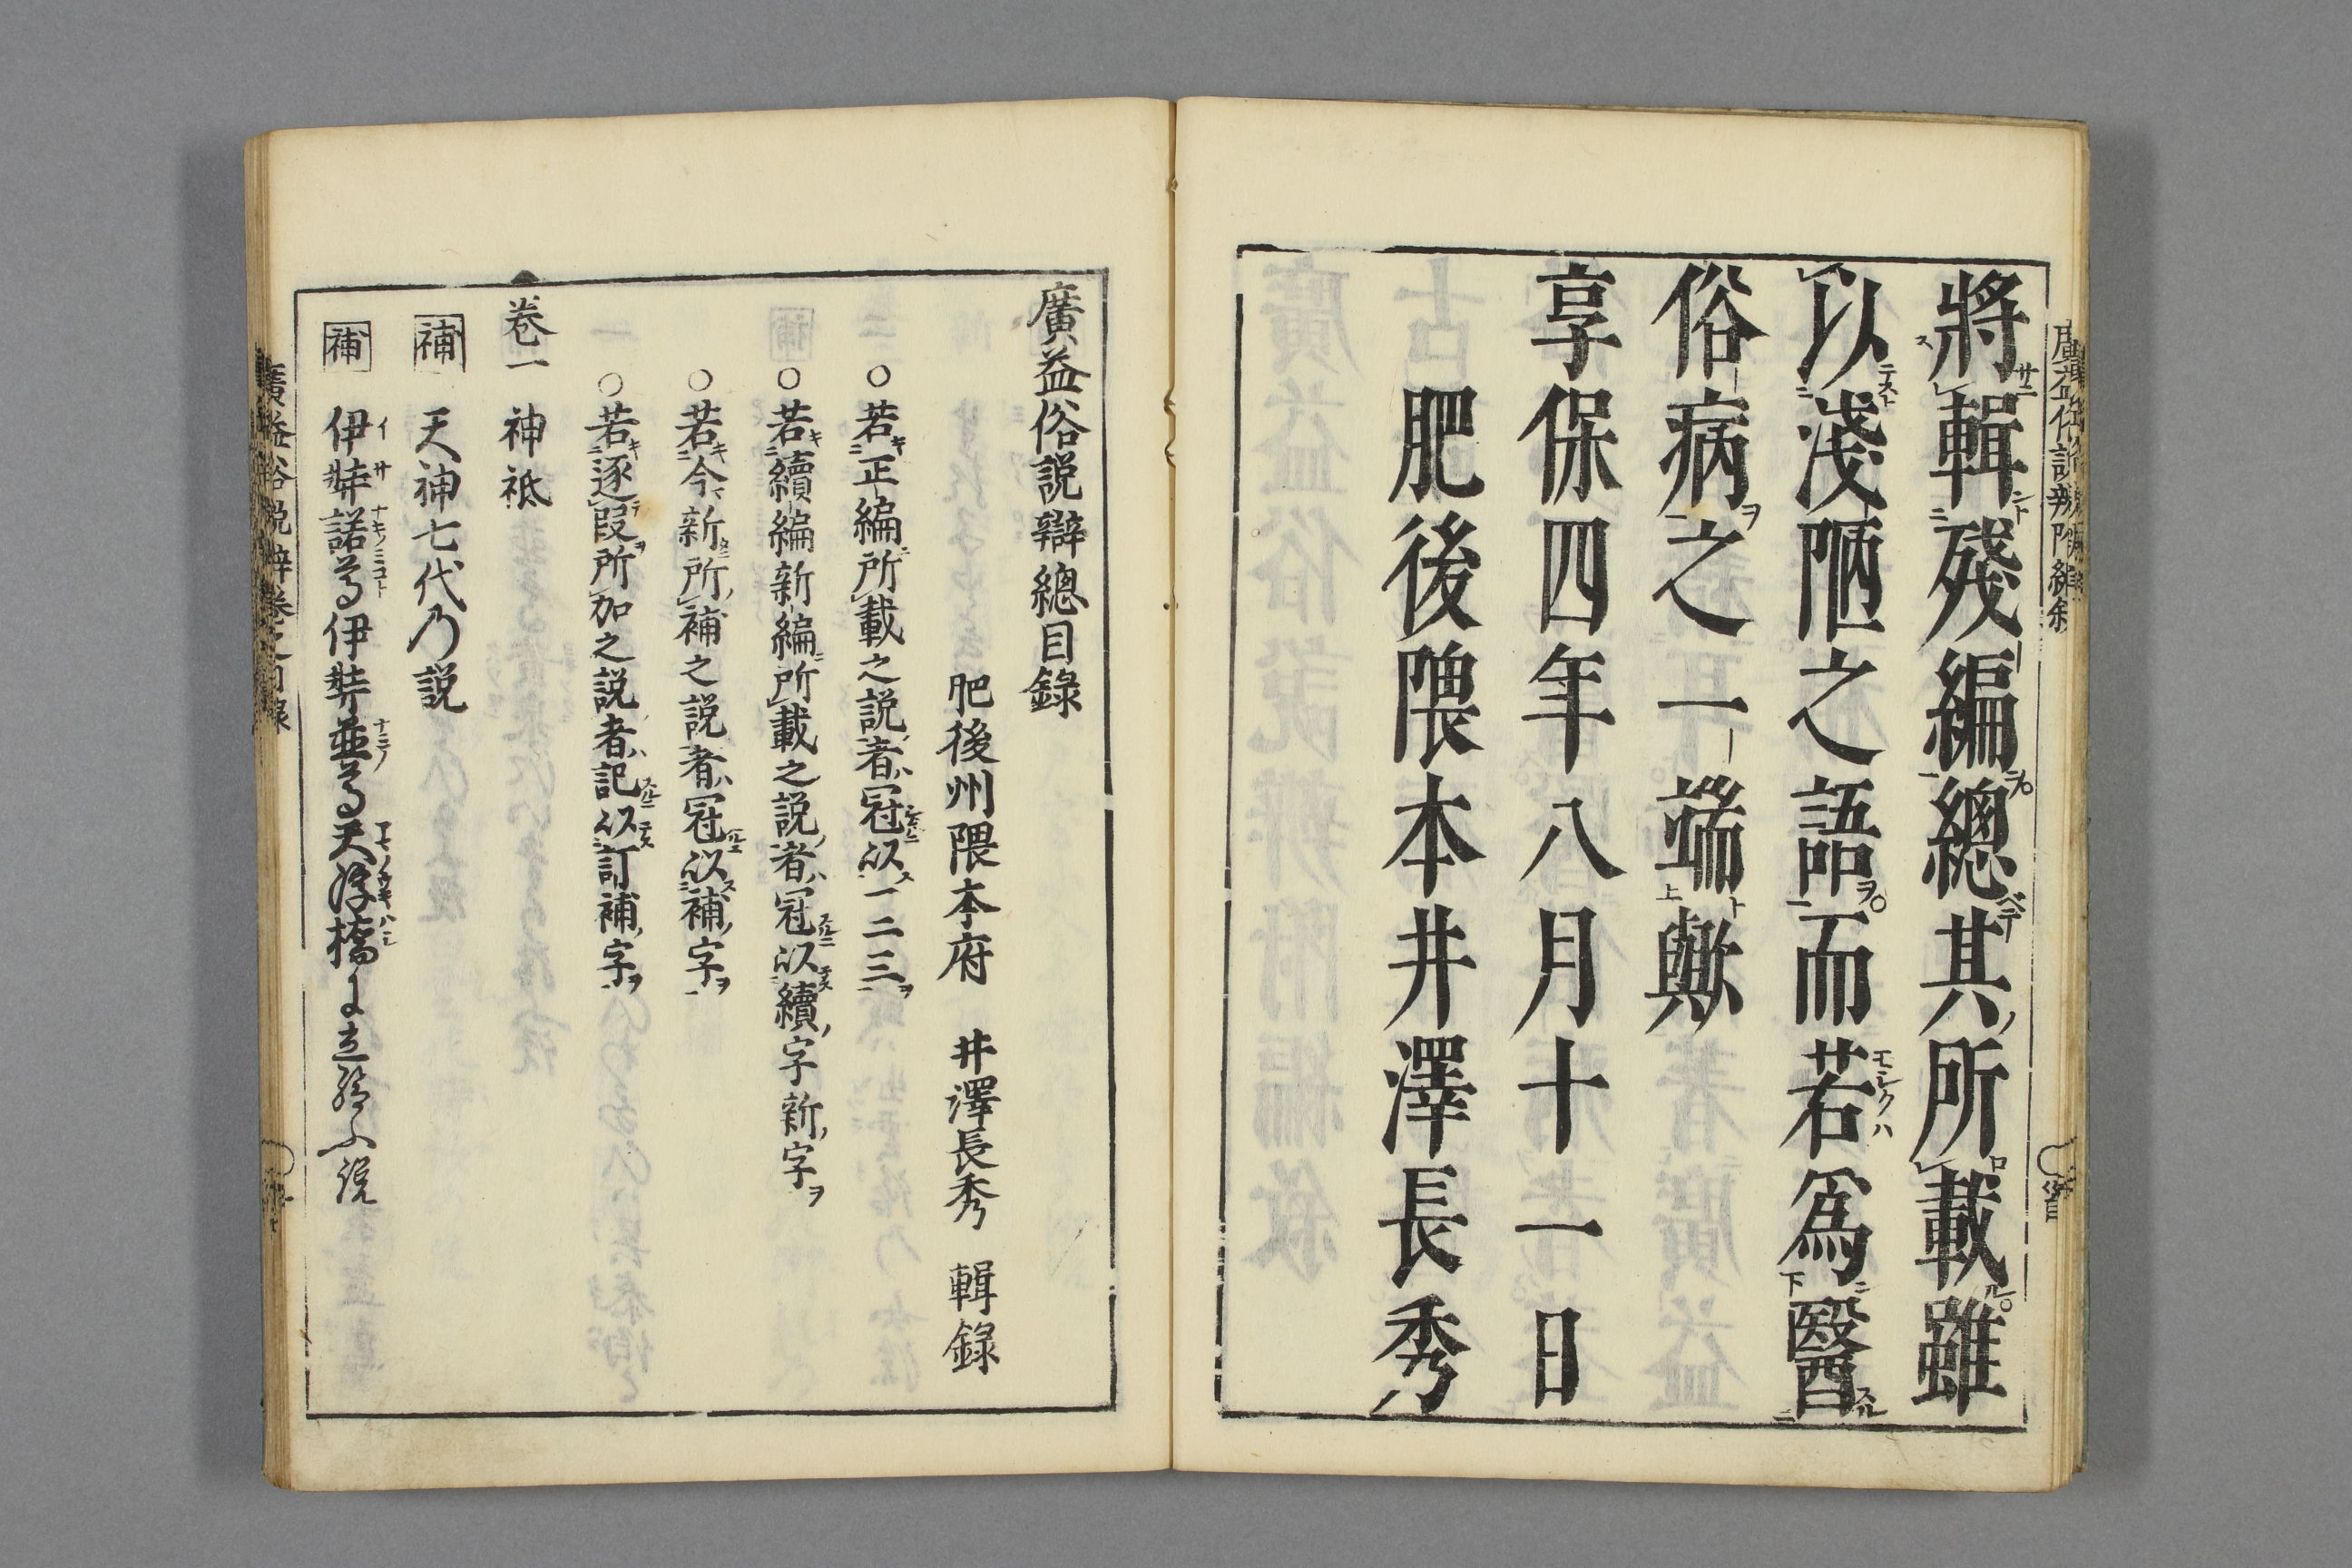 將輯殘編總其所載雖
以淺陋之語而若爲醫
俗病之一端歟
享保四年八月十一日
肥後隈本井澤長秀
廣益俗説辯總目錄
肥後州隈本府 井澤長秀 輯錄
○若正編所載之説者冠以一二三
○若續編新編所載之説者冠以續字新字
○若今新所補之説者冠以補字
○若逐段所加之説者記以訂補字
卷一 神祇
補 天神七代乃説
補 伊弉諾尊伊弉並尊天浮橋に立給ふ説